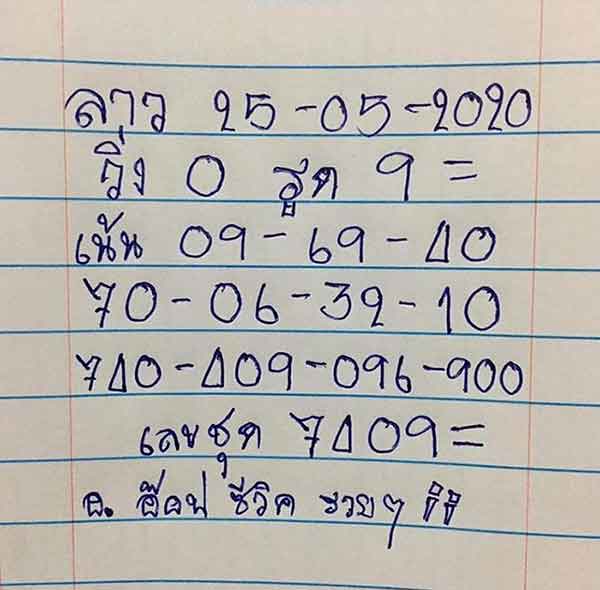 ลาว 25-05-2020
วิ่ง 0 รูด 9 =
เน้น 09-69-40
70-06-39-10
740-409-096-900
เลขชุด 7409=
อ. อ๊อฟ ชีวิต รวยๆ